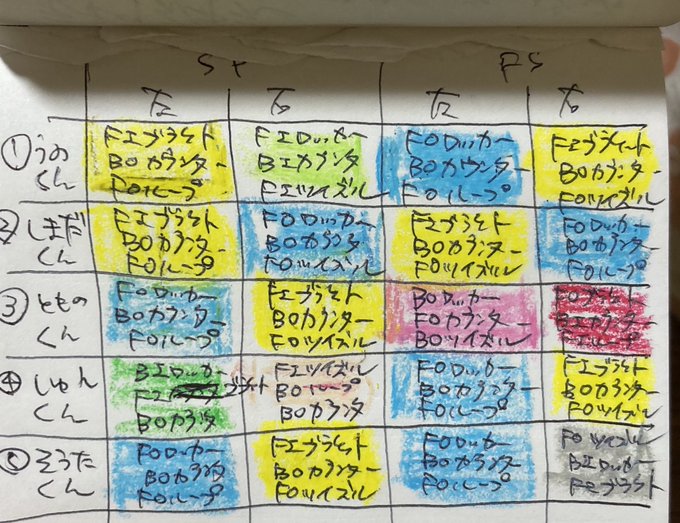 SP FS
左 右 左 右
①うのくん
FIブラケット FIロッカー FOロッカー FIブラケット
BOカウンター BIカウンタ BOカウンター BOカウンター
FOループ FIツイズル FOループ FOツイズル
②しまだくん
FIブラケット FOロッカー FIブラケット FOロッカー
BOカウンター BOカウンター BOカウンター BOカウンター
FOループ FOツイズル FOツイズル FOループ
③とものくん
FOロッカー FIブラケット BOロッカー FOブラケット
BOカウンター BOカウンター FOカウンター BIカウンター
FOループ FOツイズル BOツイズル FOループ
④しゅんくん
BIロッカー FIツイズル FOロッカー FIブラケット
FIブラケット BOループ BOカウンタ BOカウンター
BOカウンタ BOカウンタ FOループ FOツイズル
⑤そうたくん
FOロッカー FIブラケット FOロッカー FOツイズル
BOカウンタ BOカウンター BOカウンター BIロッカー
FOループ FOツイズル FOループ FIブラケット